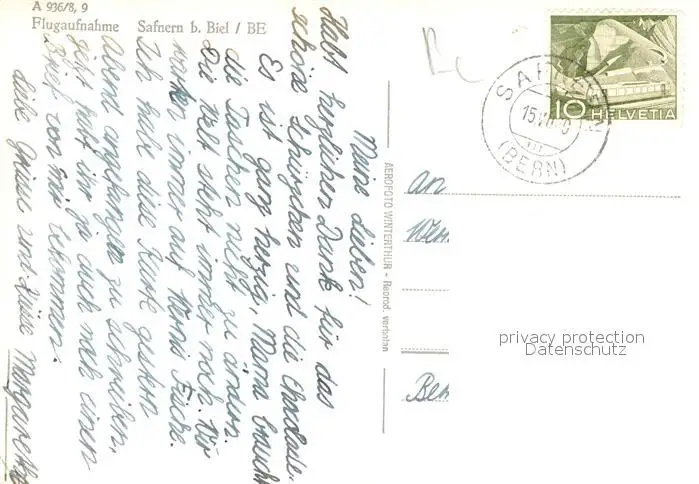 A 936/8, 9
Flugaufnahme Safnern b. Biel / BE
Meine Lieben!
Habt herzlichen Dank für das
schöne Schürzchen und die Chocolade.
Es ist ganz herzig, Mama braucht
die Taschen nicht zu ändern.
Die Welt steht immer noch. Wir
warten immer auf Füsse.
Ich habe diese Karte gestern
Abend angefangen zu schreiben,
jetzt habt ihr ja auch noch einen
Brief von mir bekommen.
Liebe Grüsse und Küsse Margareth
AEROFOTO WINTERTHUR - Reprod. verboten
10 HELVETIA
SAFNERN
15.VI
(BERN)
An
Ber
privacy protection
Datenschutz